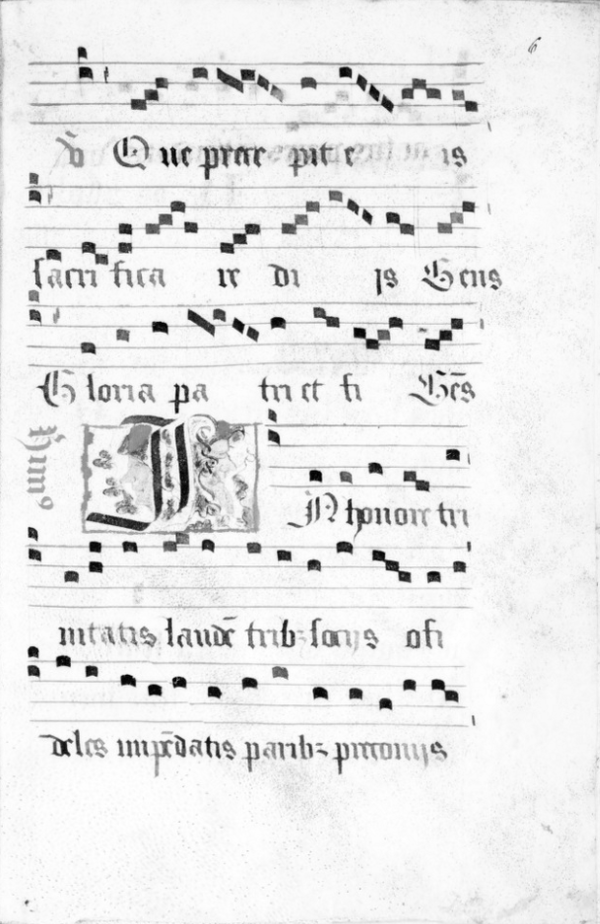 6
℣ Que prece pit e is
sacri fica re di is Gens
Gloria pa tri et fi Gēs
Himꝰ
IN honore tri
nitatis laudē trib⁊ socijs o fi
deles impēdatis parib⁊ preconijs